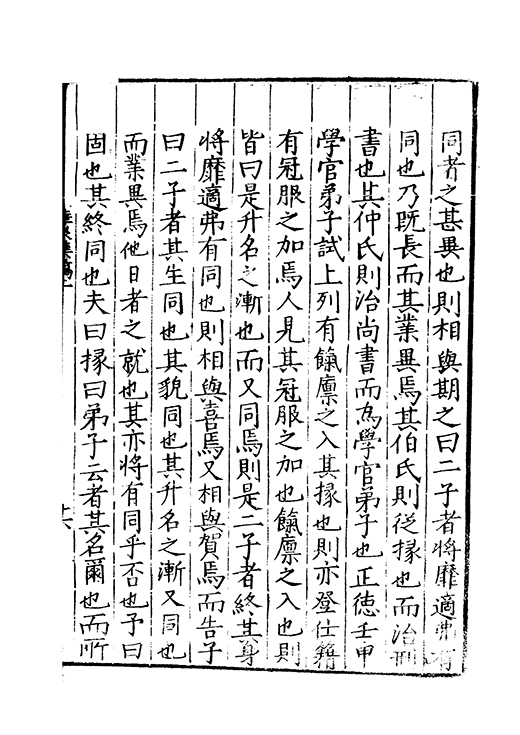 同者之甚異也則相與期之曰二子者將靡適弗有
同也乃既長而其業異焉其伯氏則從掾也而治刑
書也其仲氏則治尚書而為學官弟子也正德壬申
學官弟子試上列有餼廩之入其掾也則亦登仕籍
有冠服之加焉人見其冠服之加也餼廩之入也則
皆曰是升名之漸也而又同焉則是二子者終其身
將靡適弗有同也則相與喜焉又相與賀焉而告子
曰二子者其生同也其貌同也其升名之漸又同也
而業異焉他日者之就也其亦將有同乎否也予曰
固也其終同也夫曰掾曰弟子云者其名爾也而所